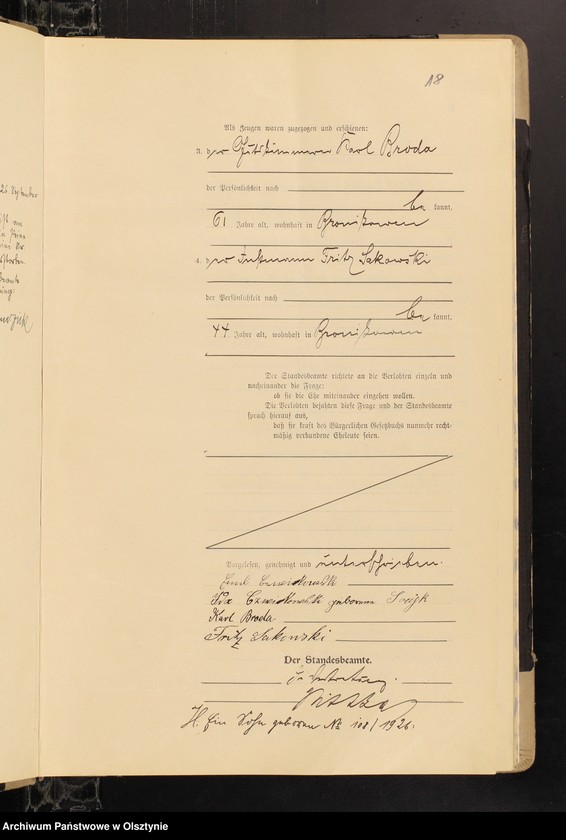 18
Als Zeugen waren zugezogen und erschienen:
3. der Gutskämmerer Karl Broda
der Persönlichkeit nach
be kannt,
61 Jahre alt, wohnhaft in Bronikowen
4. der Instmann Fritz Sakowski
der Persönlichkeit nach
be kannt,
44 Jahre alt, wohnhaft in Bronikowen
Der Standesbeamte richtete an die Verlobten einzeln und
nacheinander die Frage:
ob sie die Ehe miteinander eingehen wollen.
Die Verlobten bejahten diese Frage und der Standesbeamte
sprach hierauf aus,
daß sie kraft des Bürgerlichen Gesetzbuchs nunmehr recht-
mäßig verbundene Eheleute seien.
Vorgelesen, genehmigt und unterschrieben.
Emil
geborene
Karl Broda
Fritz Sakowski
Der Standesbeamte.
In Vertretung.
H. Ein Sohn geboren No 108/1926.
26. September
Archiwum Państwowe w Olsztynie